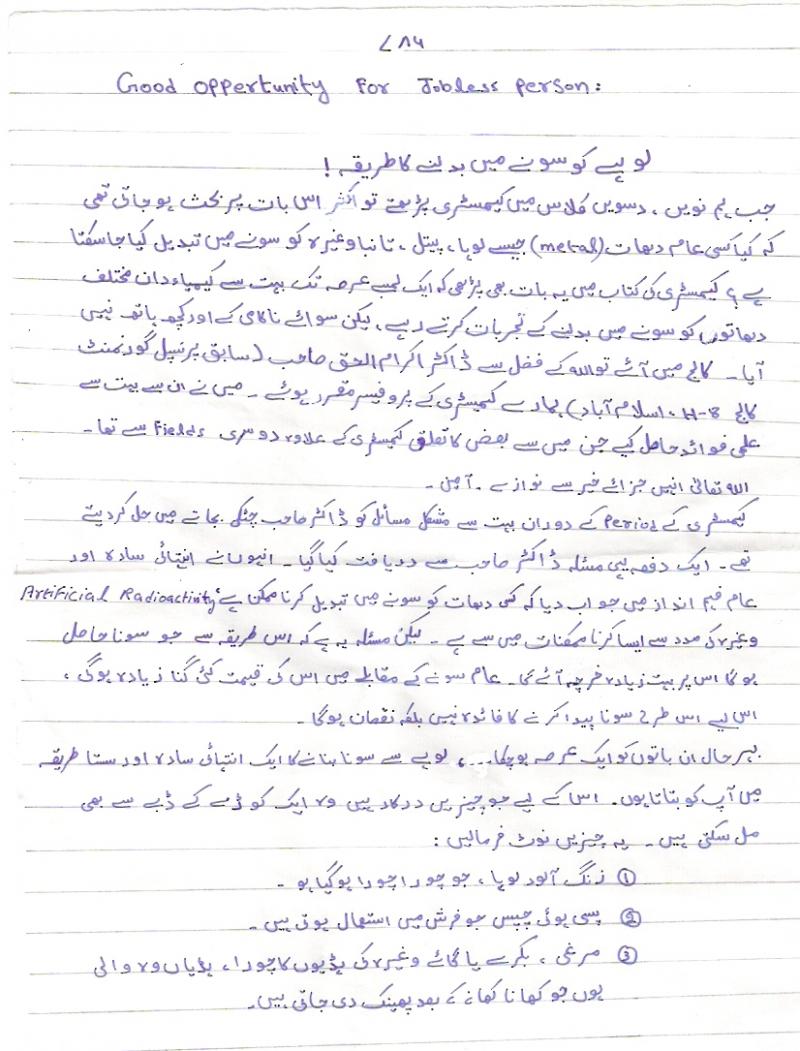 ۷۸۶
Good Oppertunity For Jobless Person:
لوہے کو سونے میں بدلنے کا طریقہ !
جب ہم نویں، دسویں کلاس میں کیمسٹری پڑھتے تو اکثر اس بات پر بحث ہو جاتی تھی
کہ کیا کسی عام دھات (metal) جیسے لوہا، پیتل، تانبا وغیرہ کو سونے میں تبدیل کیا جا سکتا
ہے؟ کیمسٹری کی کتاب میں یہ بات بھی پڑھی کہ ایک لمبے عرصہ تک بہت سے کیمیاء دان مختلف
دھاتوں کو سونے میں بدلنے کے تجربات کرتے رہے، لیکن سوائے ناکامی کے اور کچھ ہاتھ نہیں
آیا۔ کالج میں آئے تو اللہ کے فضل سے ڈاکٹر اکرام الحق صاحب (سابق پرنسپل گورنمنٹ
کالج H-8، اسلام آباد) ہمارے کیمسٹری کے پروفیسر مقرر ہوئے۔ میں نے ان سے بہت سے
علمی فوائد حاصل کیے جن میں سے بعض کا تعلق کیمسٹری کے علاوہ دوسری Fields سے تھا۔
اللہ تعالیٰ انہیں جزائے خیر سے نوازے۔ آمین۔
کیمسٹری کے Period کے دوران بہت سے مشکل مسائل کو ڈاکٹر صاحب چٹکی بجاتے میں حل کر دیتے
تھے۔ ایک دفعہ یہی مسئلہ ڈاکٹر صاحب سے دریافت کیا گیا۔ انہوں نے انتہائی سادہ اور
عام فہم انداز میں جواب دیا کہ کسی دھات کو سونے میں تبدیل کرنا ممکن ہے، Artificial Radioactivity
وغیرہ کی مدد سے ایسا کرنا ممکنات میں سے ہے۔ لیکن مسئلہ یہ ہے کہ اس طریقہ سے جو سونا حاصل
ہو گا اس پر بہت زیادہ خرچہ آئے گا۔ عام سونے کے مقابلے میں اس کی قیمت کئی گنا زیادہ ہو گی،
اس لیے اس طرح سونا پیدا کرنے کا فائدہ نہیں بلکہ نقصان ہو گا۔
بہر حال ان باتوں کو ایک عرصہ ہو چکا...، لوہے سے سونا بنانے کا ایک انتہائی سادہ اور سستا طریقہ
میں آپ کو بتاتا ہوں۔ اس کے لیے جو چیزیں درکار ہیں وہ ایک کوڑے کے ڈبے سے بھی
مل سکتی ہیں۔ یہ چیزیں نوٹ فرمالیں:
① زنگ آلود لوہا، جو چورا چورا ہو گیا ہو۔
② پسی ہوئی چپس جو فرش میں استعمال ہوتی ہیں۔
③ مرغی، بکرے یا گائے وغیرہ کی ہڈیوں کا چورا، ہڈیاں وہ والی
ہوں جو کھانا کھانے کے بعد پھینک دی جاتی ہیں۔